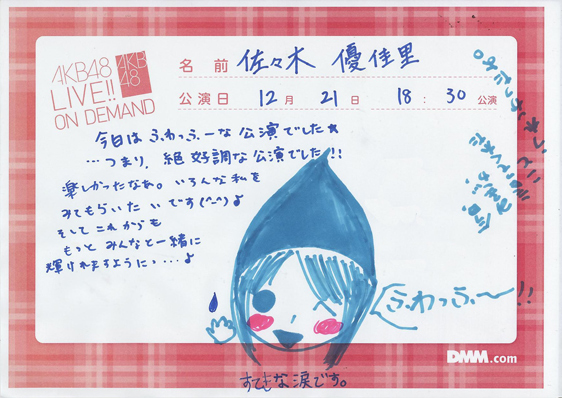 AKB48
LIVE!!
ON DEMAND
AKB
48
名前 佐々木 優佳里
公演日 12月 21日 18:30公演
今日はふわっふーな公演でした★
...つまり、絶好調な公演でした!!
楽しかったなぁ。いろんな私を
みてもらいたいです(^-^)♪
そしてこれからも
もっとみんなと一緒に
輝けれますようにっ...♪
ふわっふ〜!!
すてきな涙です。
DMM.com